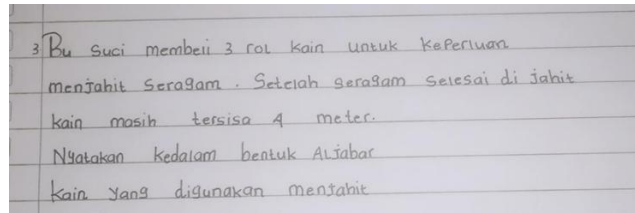 3 Bu Suci membeli 3 rol kain untuk keperluan
menjahit seragam. Setelah seragam selesai di jahit
kain masih tersisa 4 meter.
Nyatakan kedalam bentuk Aljabar
Kain yang digunakan menjahit